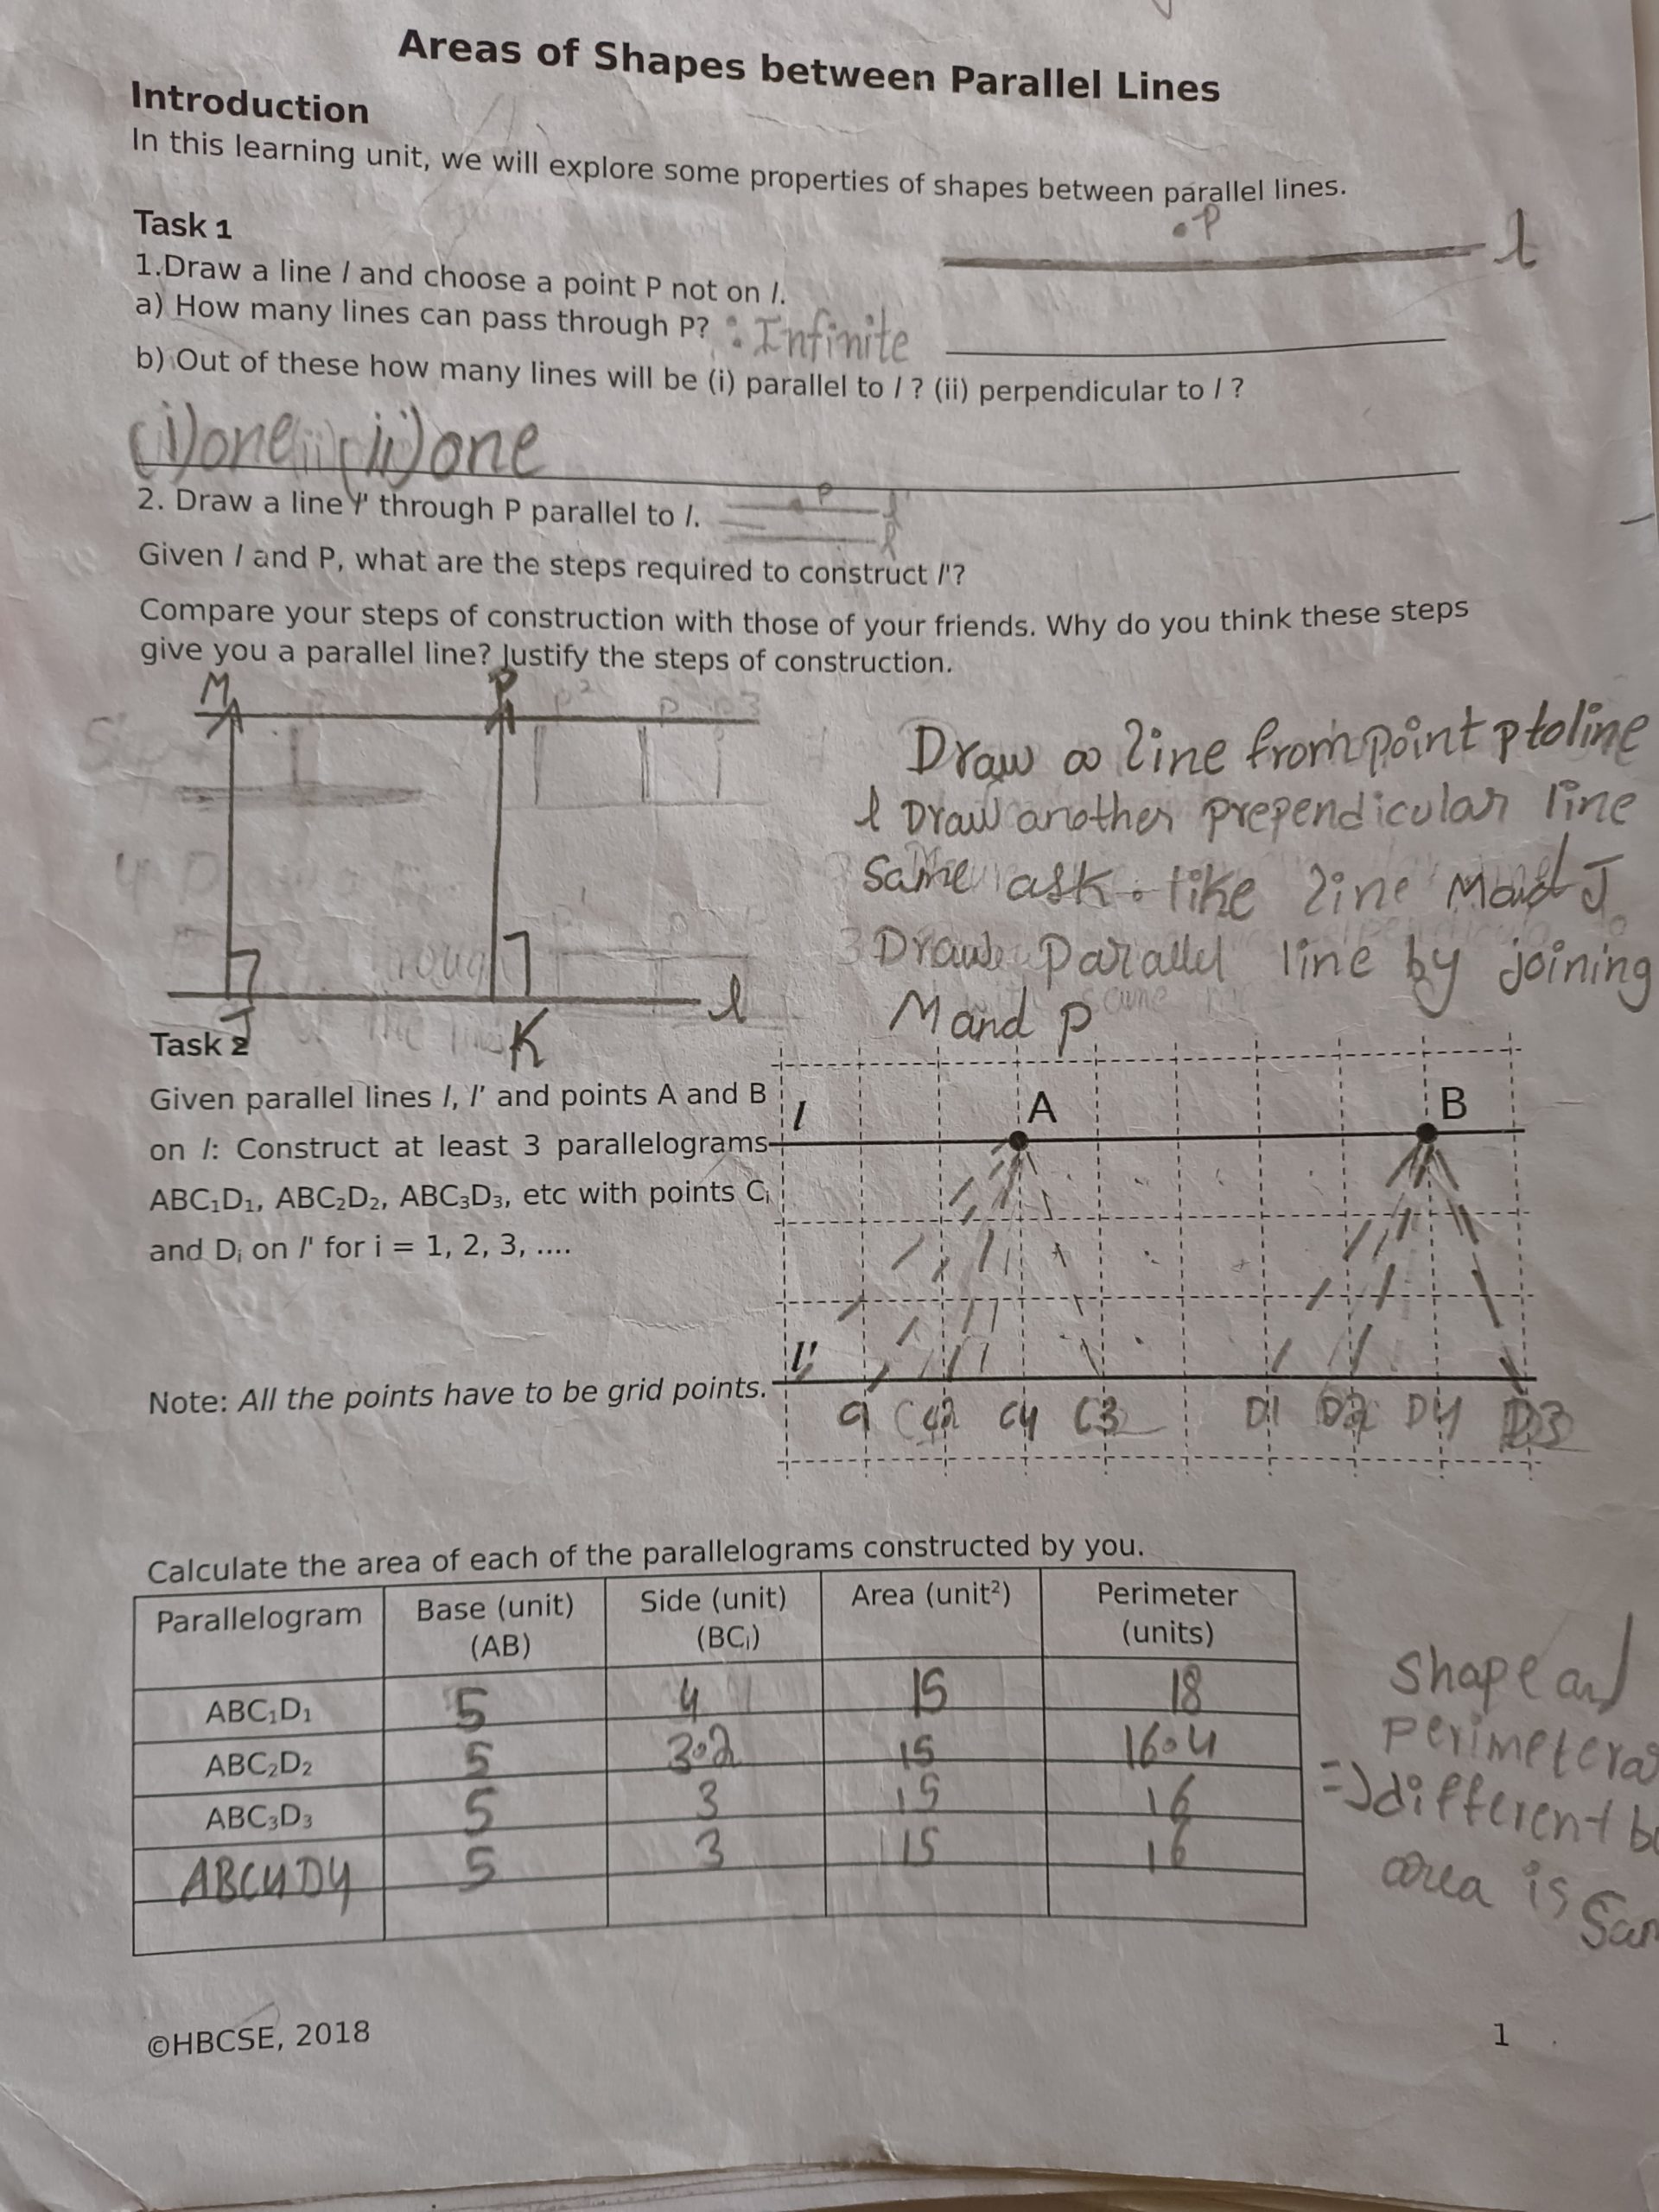 Areas of Shapes between Parallel Lines
Introduction
In this learning unit, we will explore some properties of shapes between parallel lines.
.P
l
Task 1
1.Draw a line l and choose a point P not on l.
a) How many lines can pass through P? : Infinite
b) Out of these how many lines will be (i) parallel to l ? (ii) perpendicular to l ?
(i) one (ii) one
2. Draw a line l' through P parallel to l.
P
l'
l
Given l and P, what are the steps required to construct l'?
Compare your steps of construction with those of your friends. Why do you think these steps
give you a parallel line? Justify the steps of construction.
M P
J K l
Draw a line from point p to line
l Draw another prependicular line
Same as k. like line M and J
Draw Parallel line by joining
M and p
Task 2
Given parallel lines l, l' and points A and B
on l: Construct at least 3 parallelograms
ABC₁D₁, ABC₂D₂, ABC₃D₃, etc with points Cᵢ
and Dᵢ on l' for i = 1, 2, 3, ....
Note: All the points have to be grid points.
l A B
l'
C1 C2 C4 C3 D1 D2 D4 D3
Calculate the area of each of the parallelograms constructed by you.
Parallelogram Base (unit) (AB) Side (unit) (BCᵢ) Area (unit²) Perimeter (units)
ABC₁D₁ 5 4 15 18
ABC₂D₂ 5 3.2 15 16.4
ABC₃D₃ 5 3 15 16
ABC4D4 5 3 15 16
Shape and
perimeter
=> different
area is
©HBCSE, 2018
1